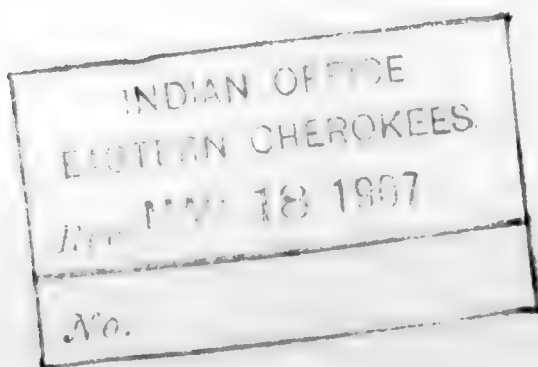 INDIAN OFFICE
EASTERN CHEROKEES.
Rec. 18 1907
No.